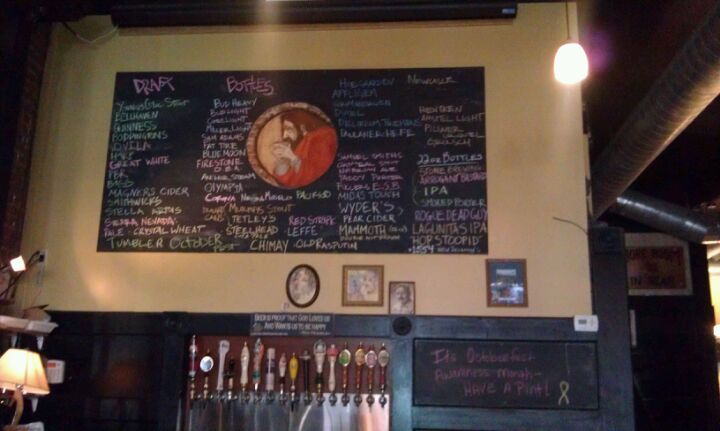 DRAFT
Young's Choc. Stout
BELHAVEN
GUINNESS
BODDINGTONS
GREAT WHITE
PBR
BASS
MAGNERS CIDER
SMITHWICKS
STELLA ARTOIS
SIERRA NEVADA
PALE - CRYSTAL WHEAT
TUMBLER OCTOBER
FEST
BOTTLES
BUD HEAVY
BUD LIGHT
COORS LIGHT
MILLER LIGHT
SAM ADAMS
FAT TIRE
BLUE MOON
FIRESTONE
D.B.A.
ANCHOR STEAM
OLYMPIA
CORONA
NEGRA MODELO
PACIFICO
MURPHYS STOUT
CANS
TETLEY'S
STEELHEAD
RED STRIPE
LEFFE
CHIMAY
OLD RASPUTIN
HOEGARDEN
AFFLIGEM
DUVEL
DELIRIUM TREMENS
PAULANER HEFE
SAMUEL SMITHS
OATMEAL STOUT
NUT BROWN ALE
TADDY PORTER
FULLERS E.S.B.
MIDAS TOUCH
WYDER'S
PEAR CIDER
MAMMOTH
DOUBLE NUT BROWN
NEWCASTLE
HEINEKEN
AMSTEL LIGHT
PILSNER
URQUEL
GROLSCH
22 OZ BOTTLES
STONE BREWING
ARROGANT BASTARD
IPA
SMOKED PORTER
ROGUE DEAD GUY
LAGUNITAS IPA
"HOP STOOPID"
1554
BEER IS PROOF THAT GOD LOVES US
AND WANTS US TO BE HAPPY
It's Octoberfest
Awareness Month -
HAVE A PINT!